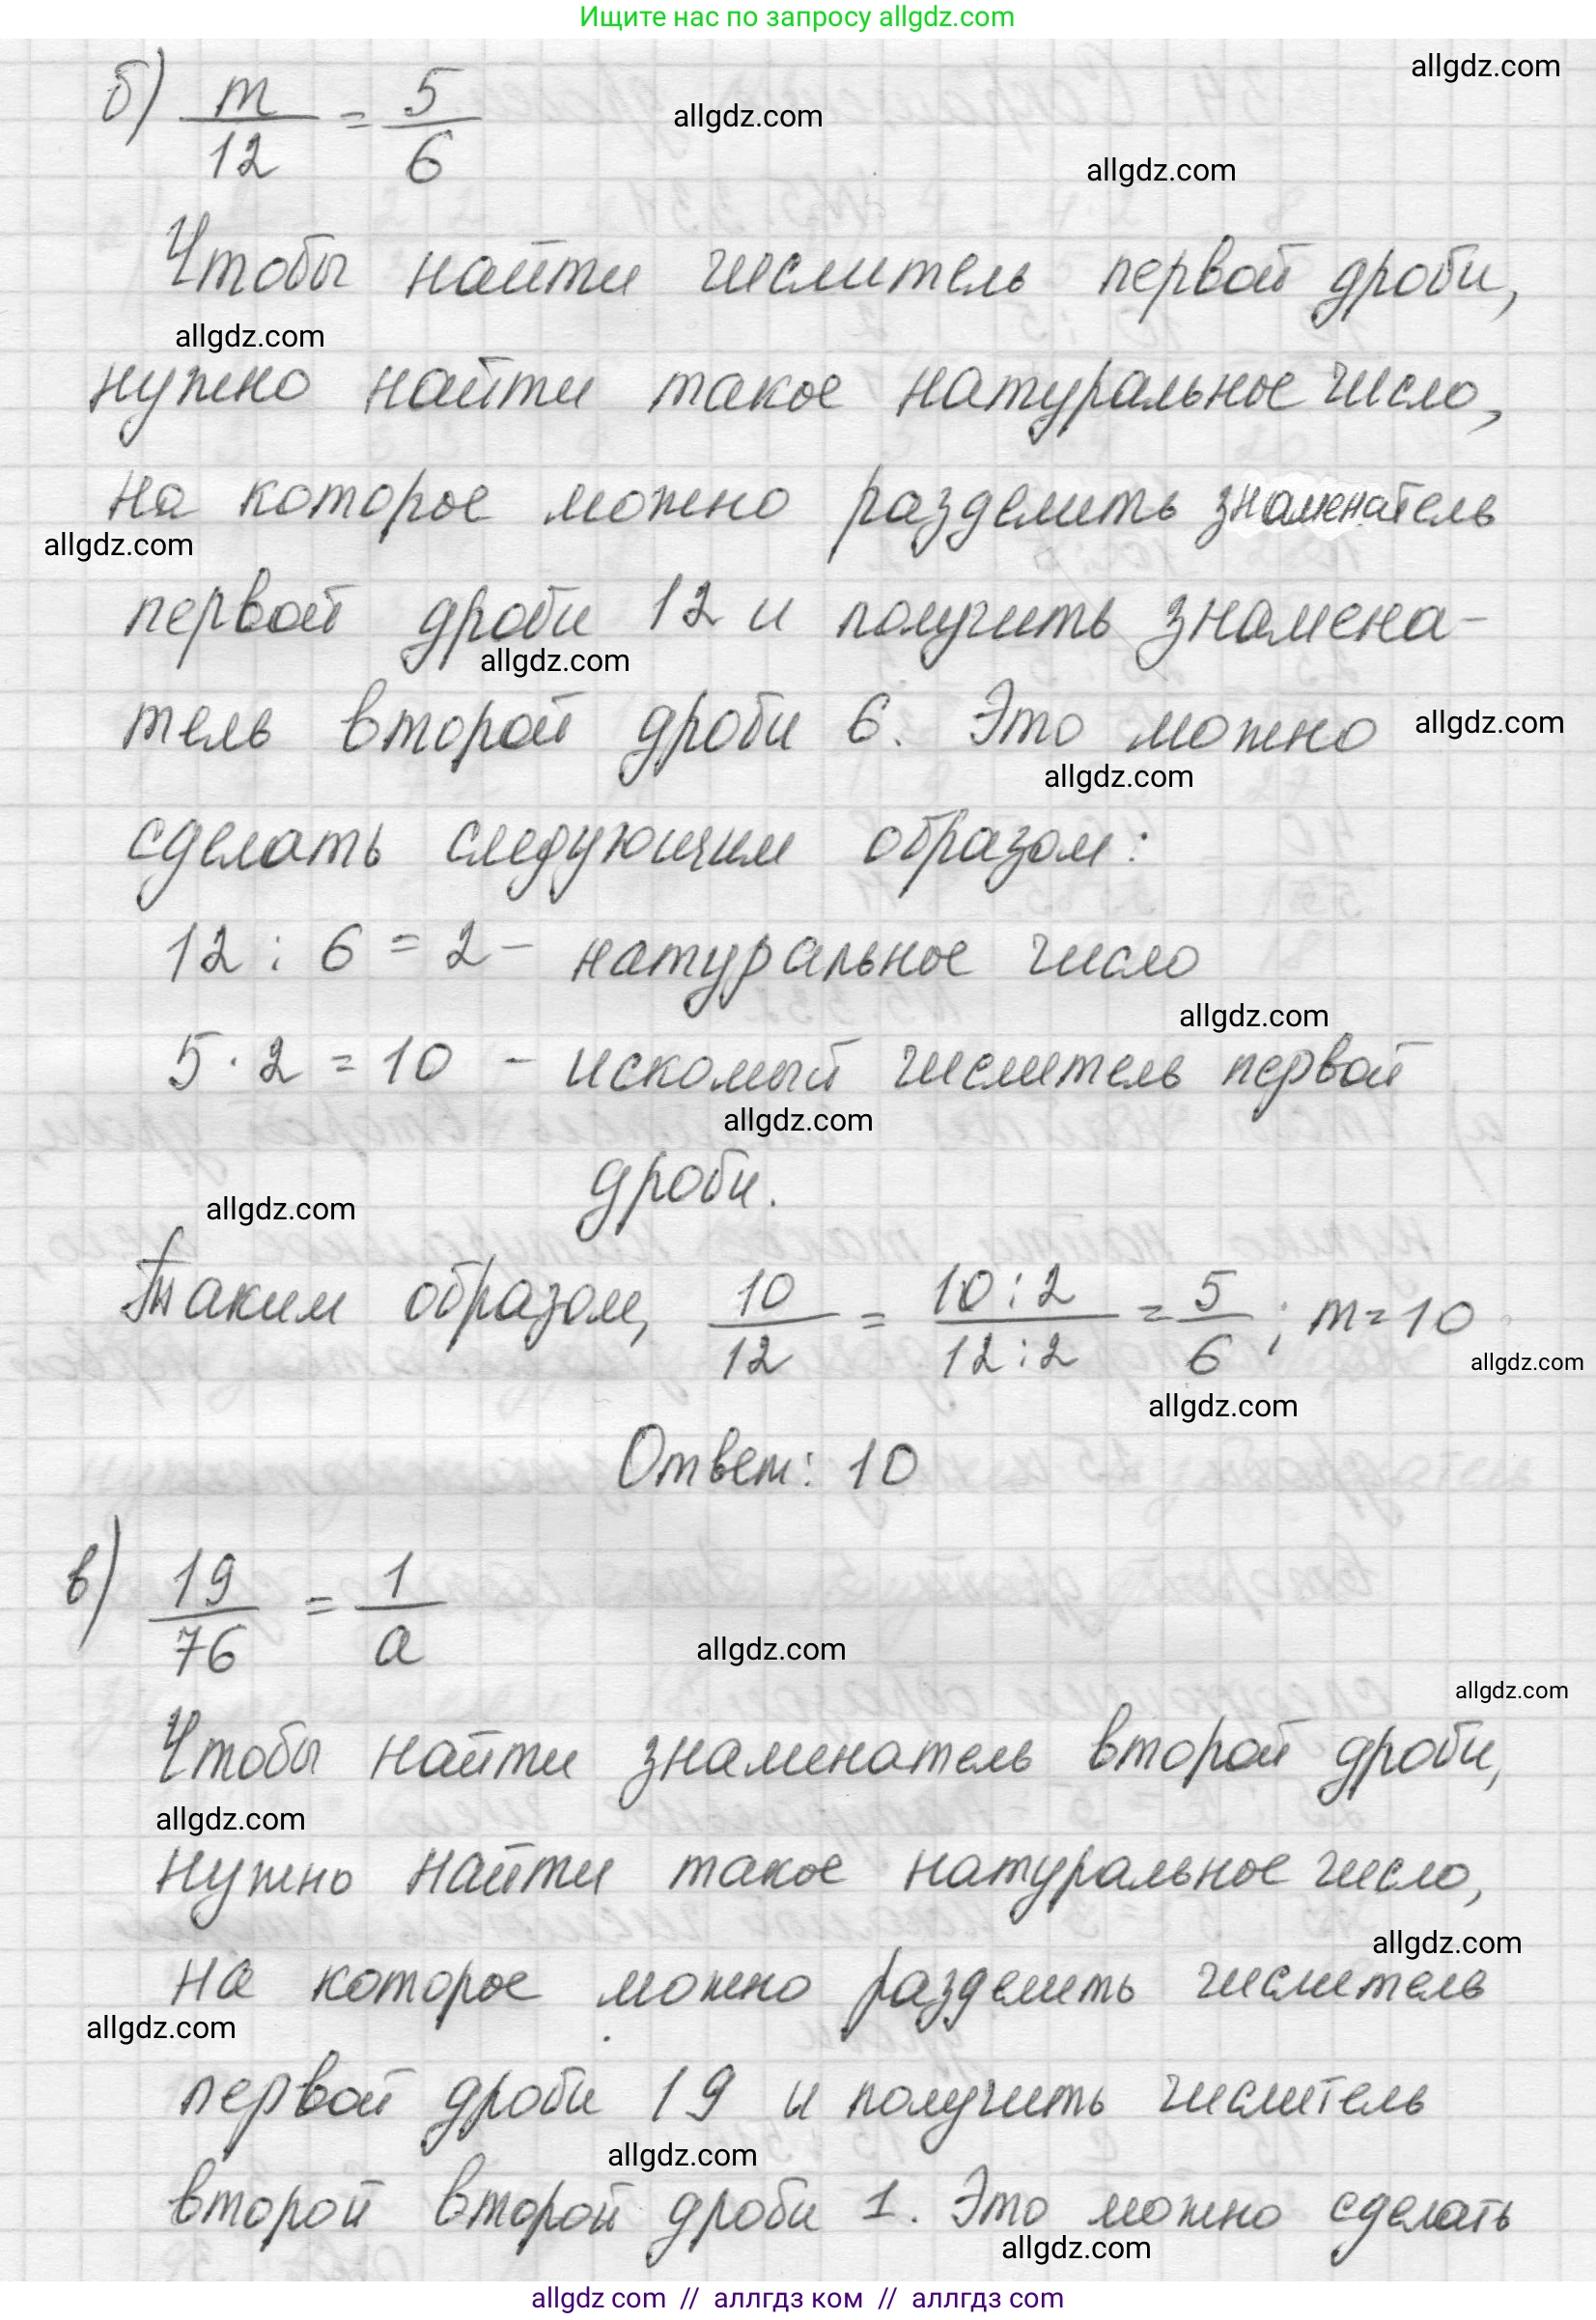 Ищите нас по запросу allgdz.com
allgdz.com
б) m/12 = 5/6
allgdz.com
allgdz.com
Чтобы найти числитель первой дроби,
allgdz.com
нужно найти такое натуральное число,
на которое можно разделить знаменатель
allgdz.com
первой дроби 12 и получить знамена-
allgdz.com
тель второй дроби 6. Это можно
allgdz.com
allgdz.com
сделать следующим образом:
12 : 6 = 2 - натуральное число
allgdz.com
5 · 2 = 10 - искомый числитель первой
allgdz.com
дроби.
allgdz.com
Таким образом, 10/12 = 10:2/12:2 = 5/6 ; m = 10
allgdz.com
allgdz.com
Ответ: 10
в) 19/76 = 1/a
allgdz.com
allgdz.com
Чтобы найти знаменатель второй дроби,
allgdz.com
нужно найти такое натуральное число,
allgdz.com
на которое можно разделить числитель
allgdz.com
первой дроби 19 и получить числитель
allgdz.com
второй второй дроби 1. Это можно сделать
allgdz.com
allgdz com // аллгдз ком // аллгдз com